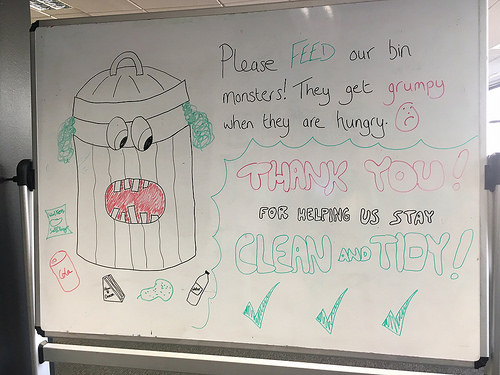 Please FEED our bin
monsters! They get grumpy
when they are hungry.
THANK YOU!
FOR HELPING US STAY
CLEAN AND TIDY!
Cola